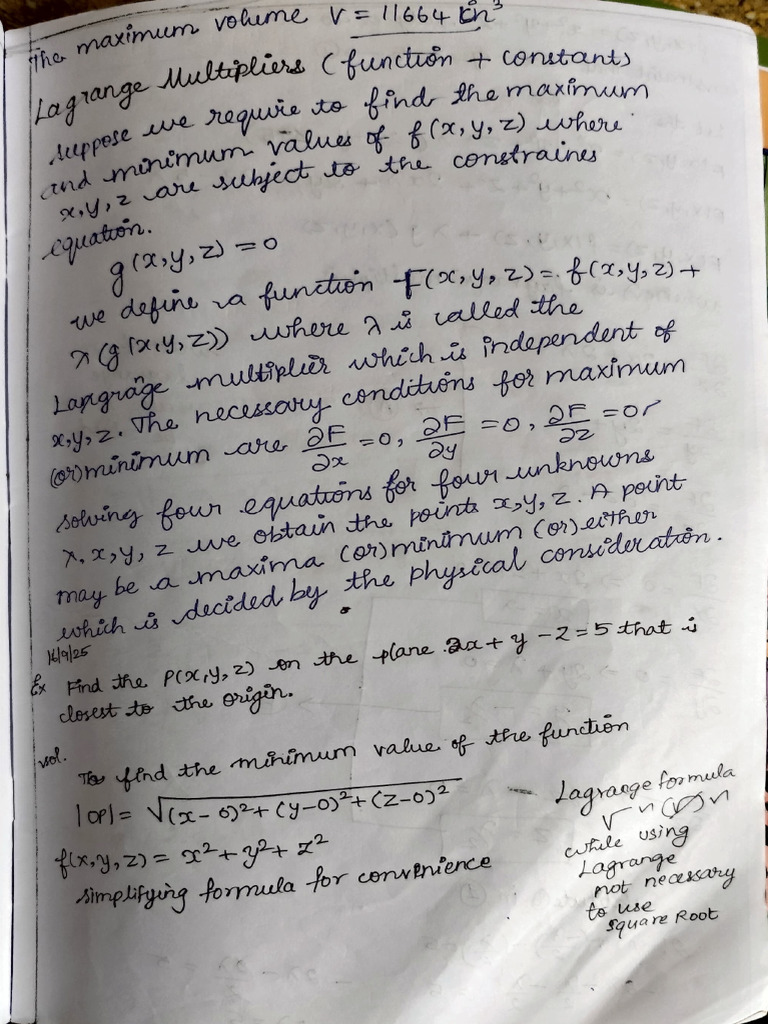 The maximum volume V = 11664 in³
Lagrange Multipliers (function + constant)
suppose we require to find the maximum
and minimum values of f(x,y,z) where
x,y,z are subject to the constraines
equation.
g(x,y,z) = 0
we define a function F(x,y,z) = f(x,y,z) +
λ(g(x,y,z)) where λ is called the
Langrange multiplier which is independent of
x,y,z. The necessary conditions for maximum
(or) minimum are ∂F/∂x = 0, ∂F/∂y = 0, ∂F/∂z = 0
solving four equations for four unknowns
λ, x, y, z we obtain the points x,y,z. A point
may be a maxima (or) minimum (or) either
which is decided by the physical consideration.
16/9/25
Ex Find the P(x,y,z) on the plane 2x + y - z = 5 that is
closest to the origin.
sol.
To find the minimum value of the function
|OP| = √(x-0)²+(y-0)²+(z-0)²
f(x,y,z) = x²+y²+z²
simplifying formula for convenience
Lagrange formula
while using
Lagrange
not necessary
to use
square Root